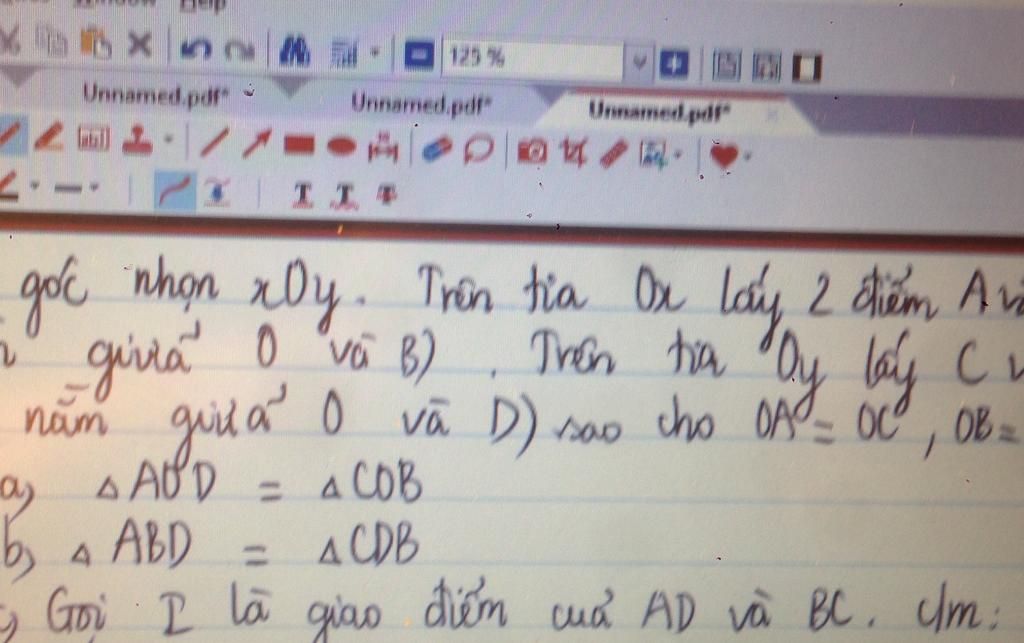 Help
125 %
Unnamed.pdf* Unnamed.pdf* Unnamed.pdf*
T T T
góc nhọn xOy. Trên tia Ox lấy 2 điểm A và
giưiả O và B). Trên tia Oy lấy C
nằm giưiả O và D) sao cho OA = OC, OB =
a, △AOD = △COB
b, △ABD = △CDB
Gọi I là giao điểm cuả AD và BC. C/m: